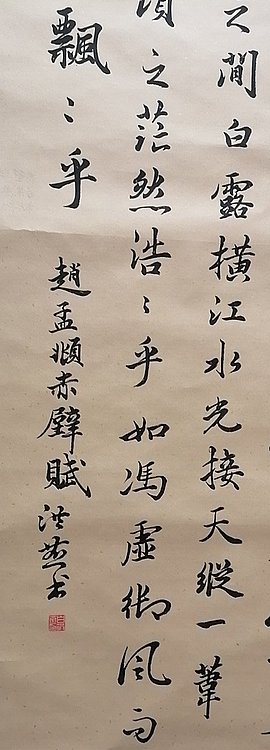 之間白露橫江水光接天縱一葦
頃之茫然浩〻乎如馮虛御風而
飄〻乎
趙孟頫赤壁賦 洪